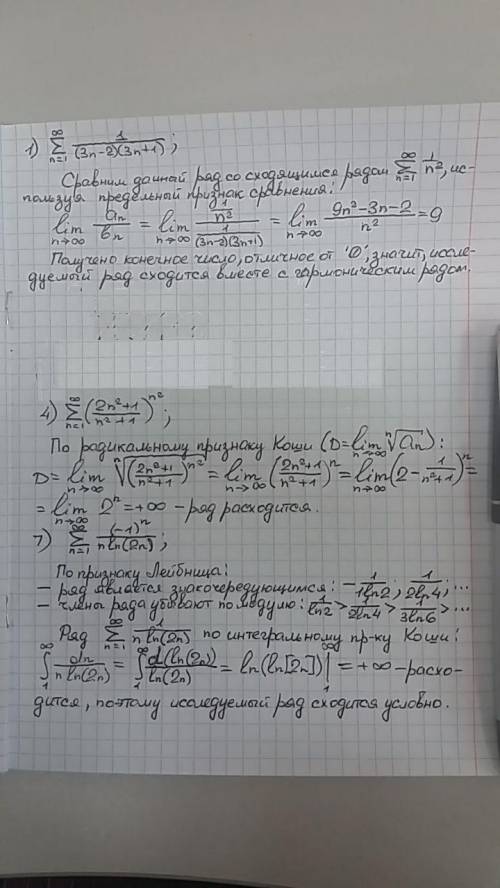 1) ∑_{n=1}^{∞} 1/((3n-2)(3n+1));
Сравним данный ряд со сходящимся рядом ∑_{n=1}^{∞} 1/n², ис-
пользуя предельный признак сравнения:
lim_{n→∞} aₙ/bₙ = lim_{n→∞} (1/n²)/(1/((3n-2)(3n+1))) = lim_{n→∞} (9n²-3n-2)/n² = 9
Получено конечное число, отличное от '0', значит, иссле-
дуемый ряд сходится вместе с гармоническим рядом.
4) ∑_{n=1}^{∞} ((2n²+1)/(n²+1))^{n²};
По радикальному признаку Коши (D = lim_{n→∞} ⁿ√aₙ):
D = lim_{n→∞} ⁿ√(((2n²+1)/(n²+1))^{n²}) = lim_{n→∞} ((2n²+1)/(n²+1))^n = lim_{n→∞} (2 - 1/(n²+1))^n =
= lim_{n→∞} 2^n = +∞ - ряд расходится.
7) ∑_{n=1}^{∞} (-1)^n/(n ln(2n));
По признаку Лейбница:
- ряд является знакочередующимся: -1/(1 ln2); 1/(2 ln4); ...
- члены ряда убывают по модулю: 1/ln2 > 1/(2 ln4) > 1/(3 ln6) > ...
Ряд ∑_{n=1}^{∞} 1/(n ln(2n)) по интегральному пр-ку Коши:
∫_{1}^{∞} dn/(n ln(2n)) = ∫_{1}^{∞} d(ln(2n))/ln(2n) = ln(ln[2n])|_{1}^{∞} = +∞ - расхо-
дится, поэтому исследуемый ряд сходится условно.